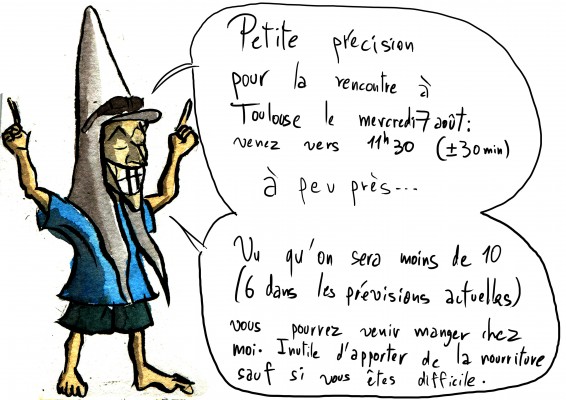 Petite précision
pour la rencontre à
Toulouse le mercredi 7 août:
venez vers 11h30 (±30min)
à peu près...
Vu qu'on sera moins de 10
(6 dans les prévisions actuelles)
vous pourrez venir manger chez
moi. Inutile d'apporter de la nourriture
sauf si vous êtes difficile.